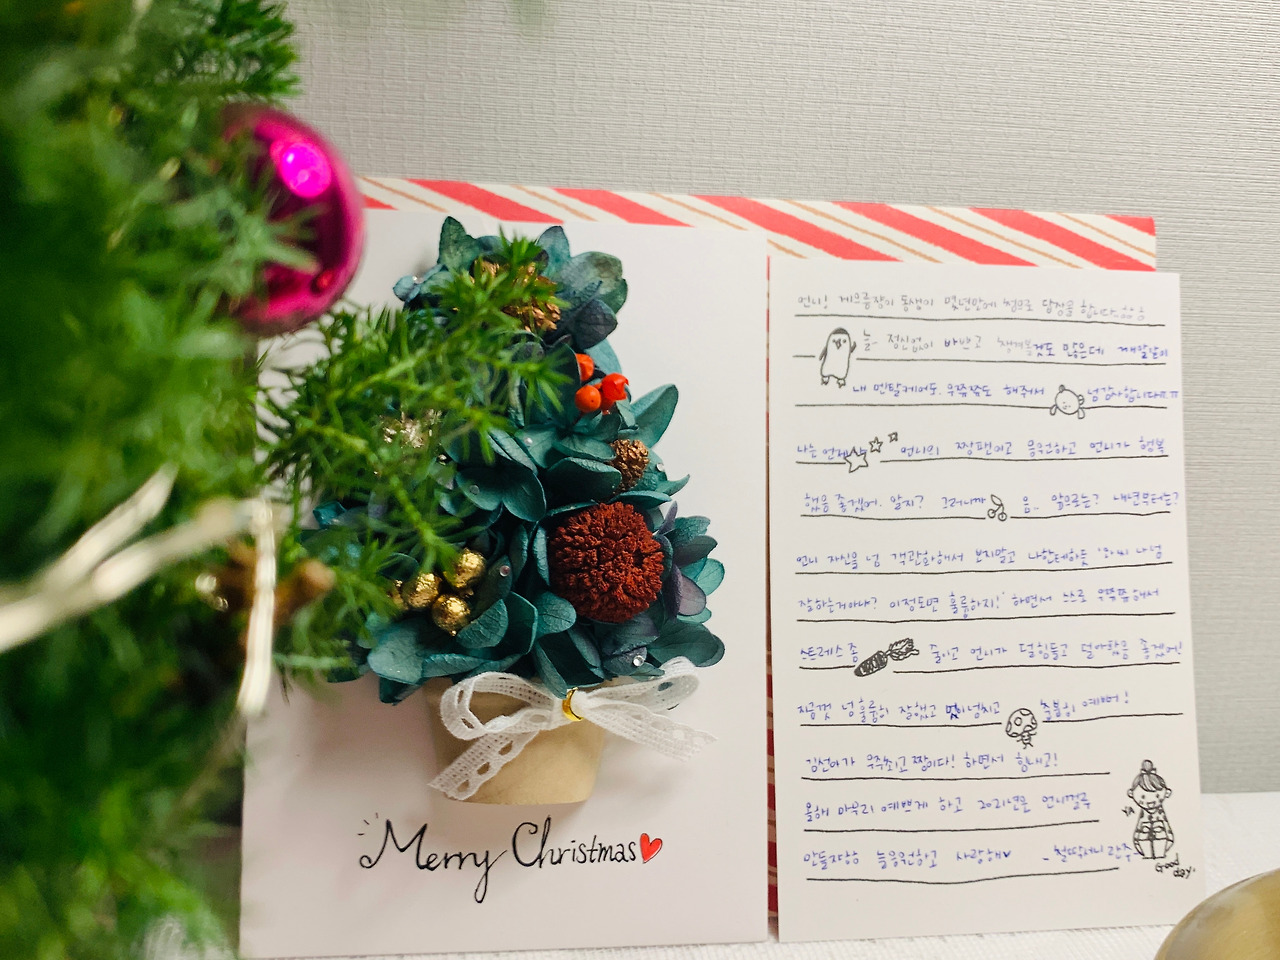 Merry Christmas
언니! 게으름쟁이 동생이 몇년만에 첨으로 당첨을 합니다
늘- 정신없이 바쁘고 챙겨볼것도 많은데 깨알같이
내 멘탈케어도, 우쭈쭈도 해줘서 넘감사합니다ㅠㅠ
나는 언제나 언니의 짱팬이고 응원하고 언니가 행복
했음 좋겠어. 알지? 그러니까 음- 앞으로는? 내년부터는?
언니 자신을 넘 객관화해서 보지말고 나한테하듯 '와씨 나 넘
잘하는거아냐? 이정도면 훌륭하지!' 하면서 스스로 우쭈쭈해서
스트레스 좀 줄이고 언니가 덜힘들고 덜아팠음 좋겠어!
지금껏 넘 훌륭히 잘했고 멋이넘치고 충분히 예뻐!
김선아가 우주최고 짱이다! 하면서 힘내고!
올해 마무리 예쁘게 하고 2021년은 언니걸루
만들자잉 늘응원하고 사랑해
Good
day.